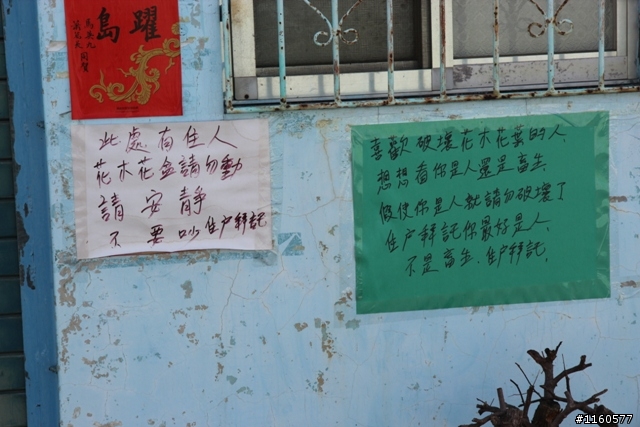 島躍
馬英九
吳敦義 同賀
此處有住人
花木花盆請勿動
請安靜
不要吵住戶拜託
喜歡破壞花木花葉的人、
想想看你是人還是畜生
假使你是人就請勿破壞了
住戶拜託你最好是人、
不是畜生、住戶拜託、
#1160577